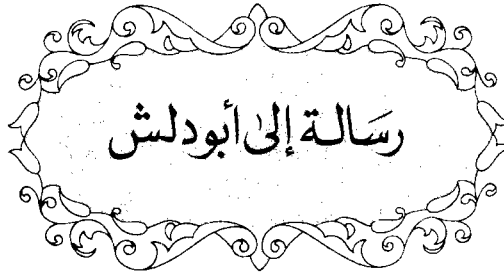 رسَالة إلىٰ أبودلش